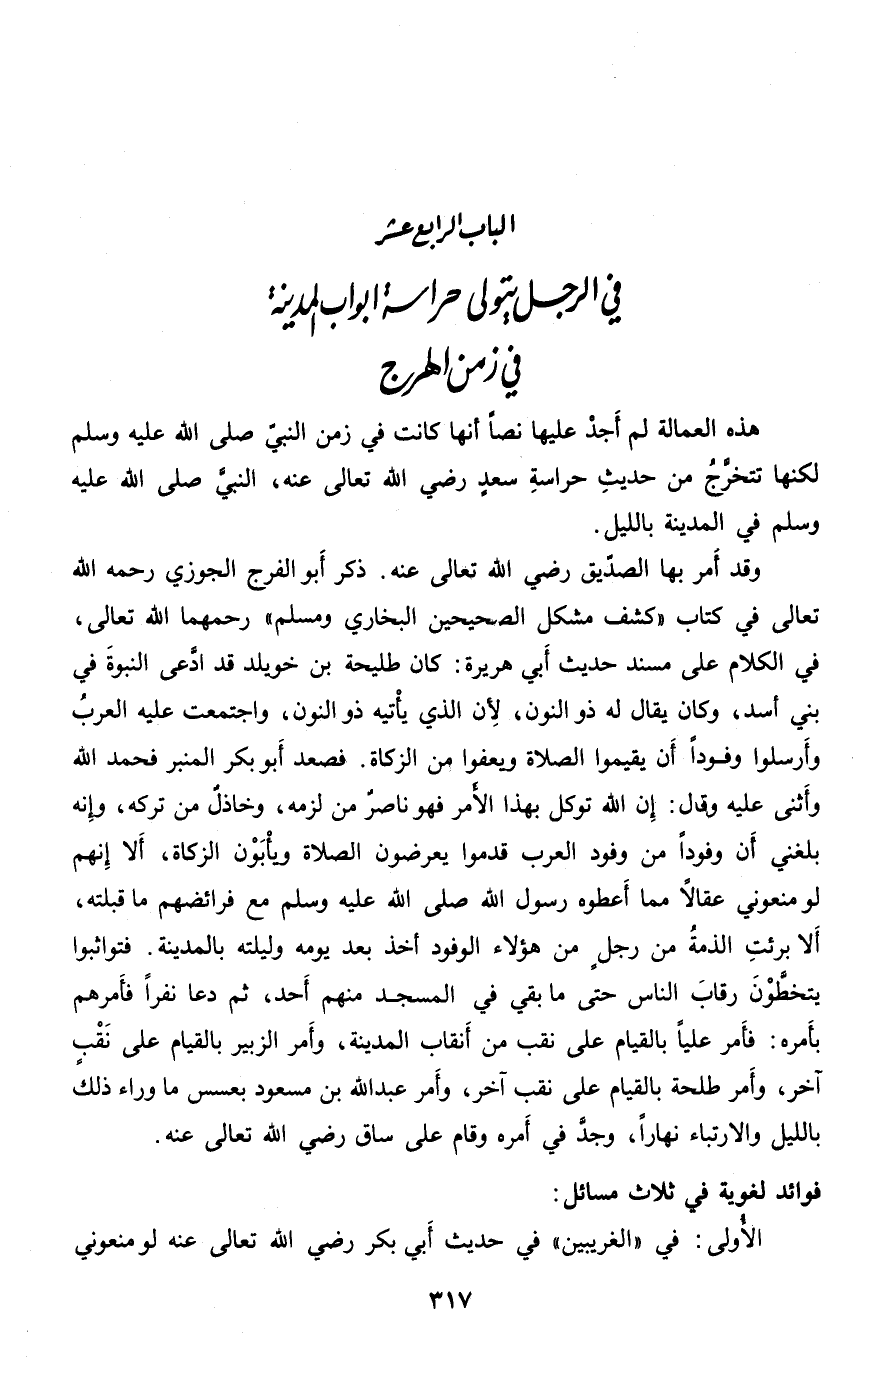 الباب الرابع عشر
في الرجل يتولى حراسة ابواب المدينة
في زمن الهرج
هذه العمالة لم أَجدْ عليها نصاً أنها كانت في زمن النبيّ صلى الله عليه وسلم
لكنها تتخرَّجُ من حديثِ حراسةِ سعدٍ رضي الله تعالى عنه، النبيَّ صلى الله عليه
وسلم في المدينة بالليل.
وقد أَمر بها الصدّيق رضي الله تعالى عنه. ذكر أَبو الفرج الجوزي رحمه الله
تعالى في كتاب «كشف مشكل الصحيحين البخاري ومسلم» رحمهما الله تعالى،
في الكلام على مسند حديث أَبي هريرة: كان طليحة بن خويلد قد ادَّعى النبوةَ في
بني أسد، وكان يقال له ذو النون، لِأن الذي يأْتيه ذو النون، واجتمعت عليه العربُ
وأَرسلوا وفوداً أَن يقيموا الصلاة ويعفوا من الزكاة. فصعد أَبو بكر المنبر فحمد الله
وأَثنى عليه وقال: إن الله توكل بهذا الأَمر فهو ناصرٌ من لزمه، وخاذلٌ من تركه، وإنه
بلغني أَن وفوداً من وفود العرب قدموا يعرضون الصلاة ويأْبَوْن الزكاة، أَلا إنهم
لو منعوني عقالاً مما أَعطوه رسول الله صلى الله عليه وسلم مع فرائضهم ما قبلته،
أَلا برئتِ الذمةُ من رجلٍ من هؤلاء الوفود أخذ بعد يومه وليلته بالمدينة. فتواثبوا
يتخطَّوْنَ رقابَ الناس حتى ما بقي في المسجد منهم أَحد، ثم دعا نفراً فأَمرهم
بأَمره: فأَمر علياً بالقيام على نقب من أَنقاب المدينة، وأَمر الزبير بالقيام على نَقْبٍ
آخر، وأَمر طلحة بالقيام على نقب آخر، وأَمر عبدالله بن مسعود بعسس ما وراء ذلك
بالليل والارتباء نهاراً، وجدَّ في أَمره وقام على ساق رضي الله تعالى عنه.
فوائد لغوية في ثلاث مسائل:
الأُولى: في «الغريبين» في حديث أَبي بكر رضي الله تعالى عنه لو منعوني
٣١٧